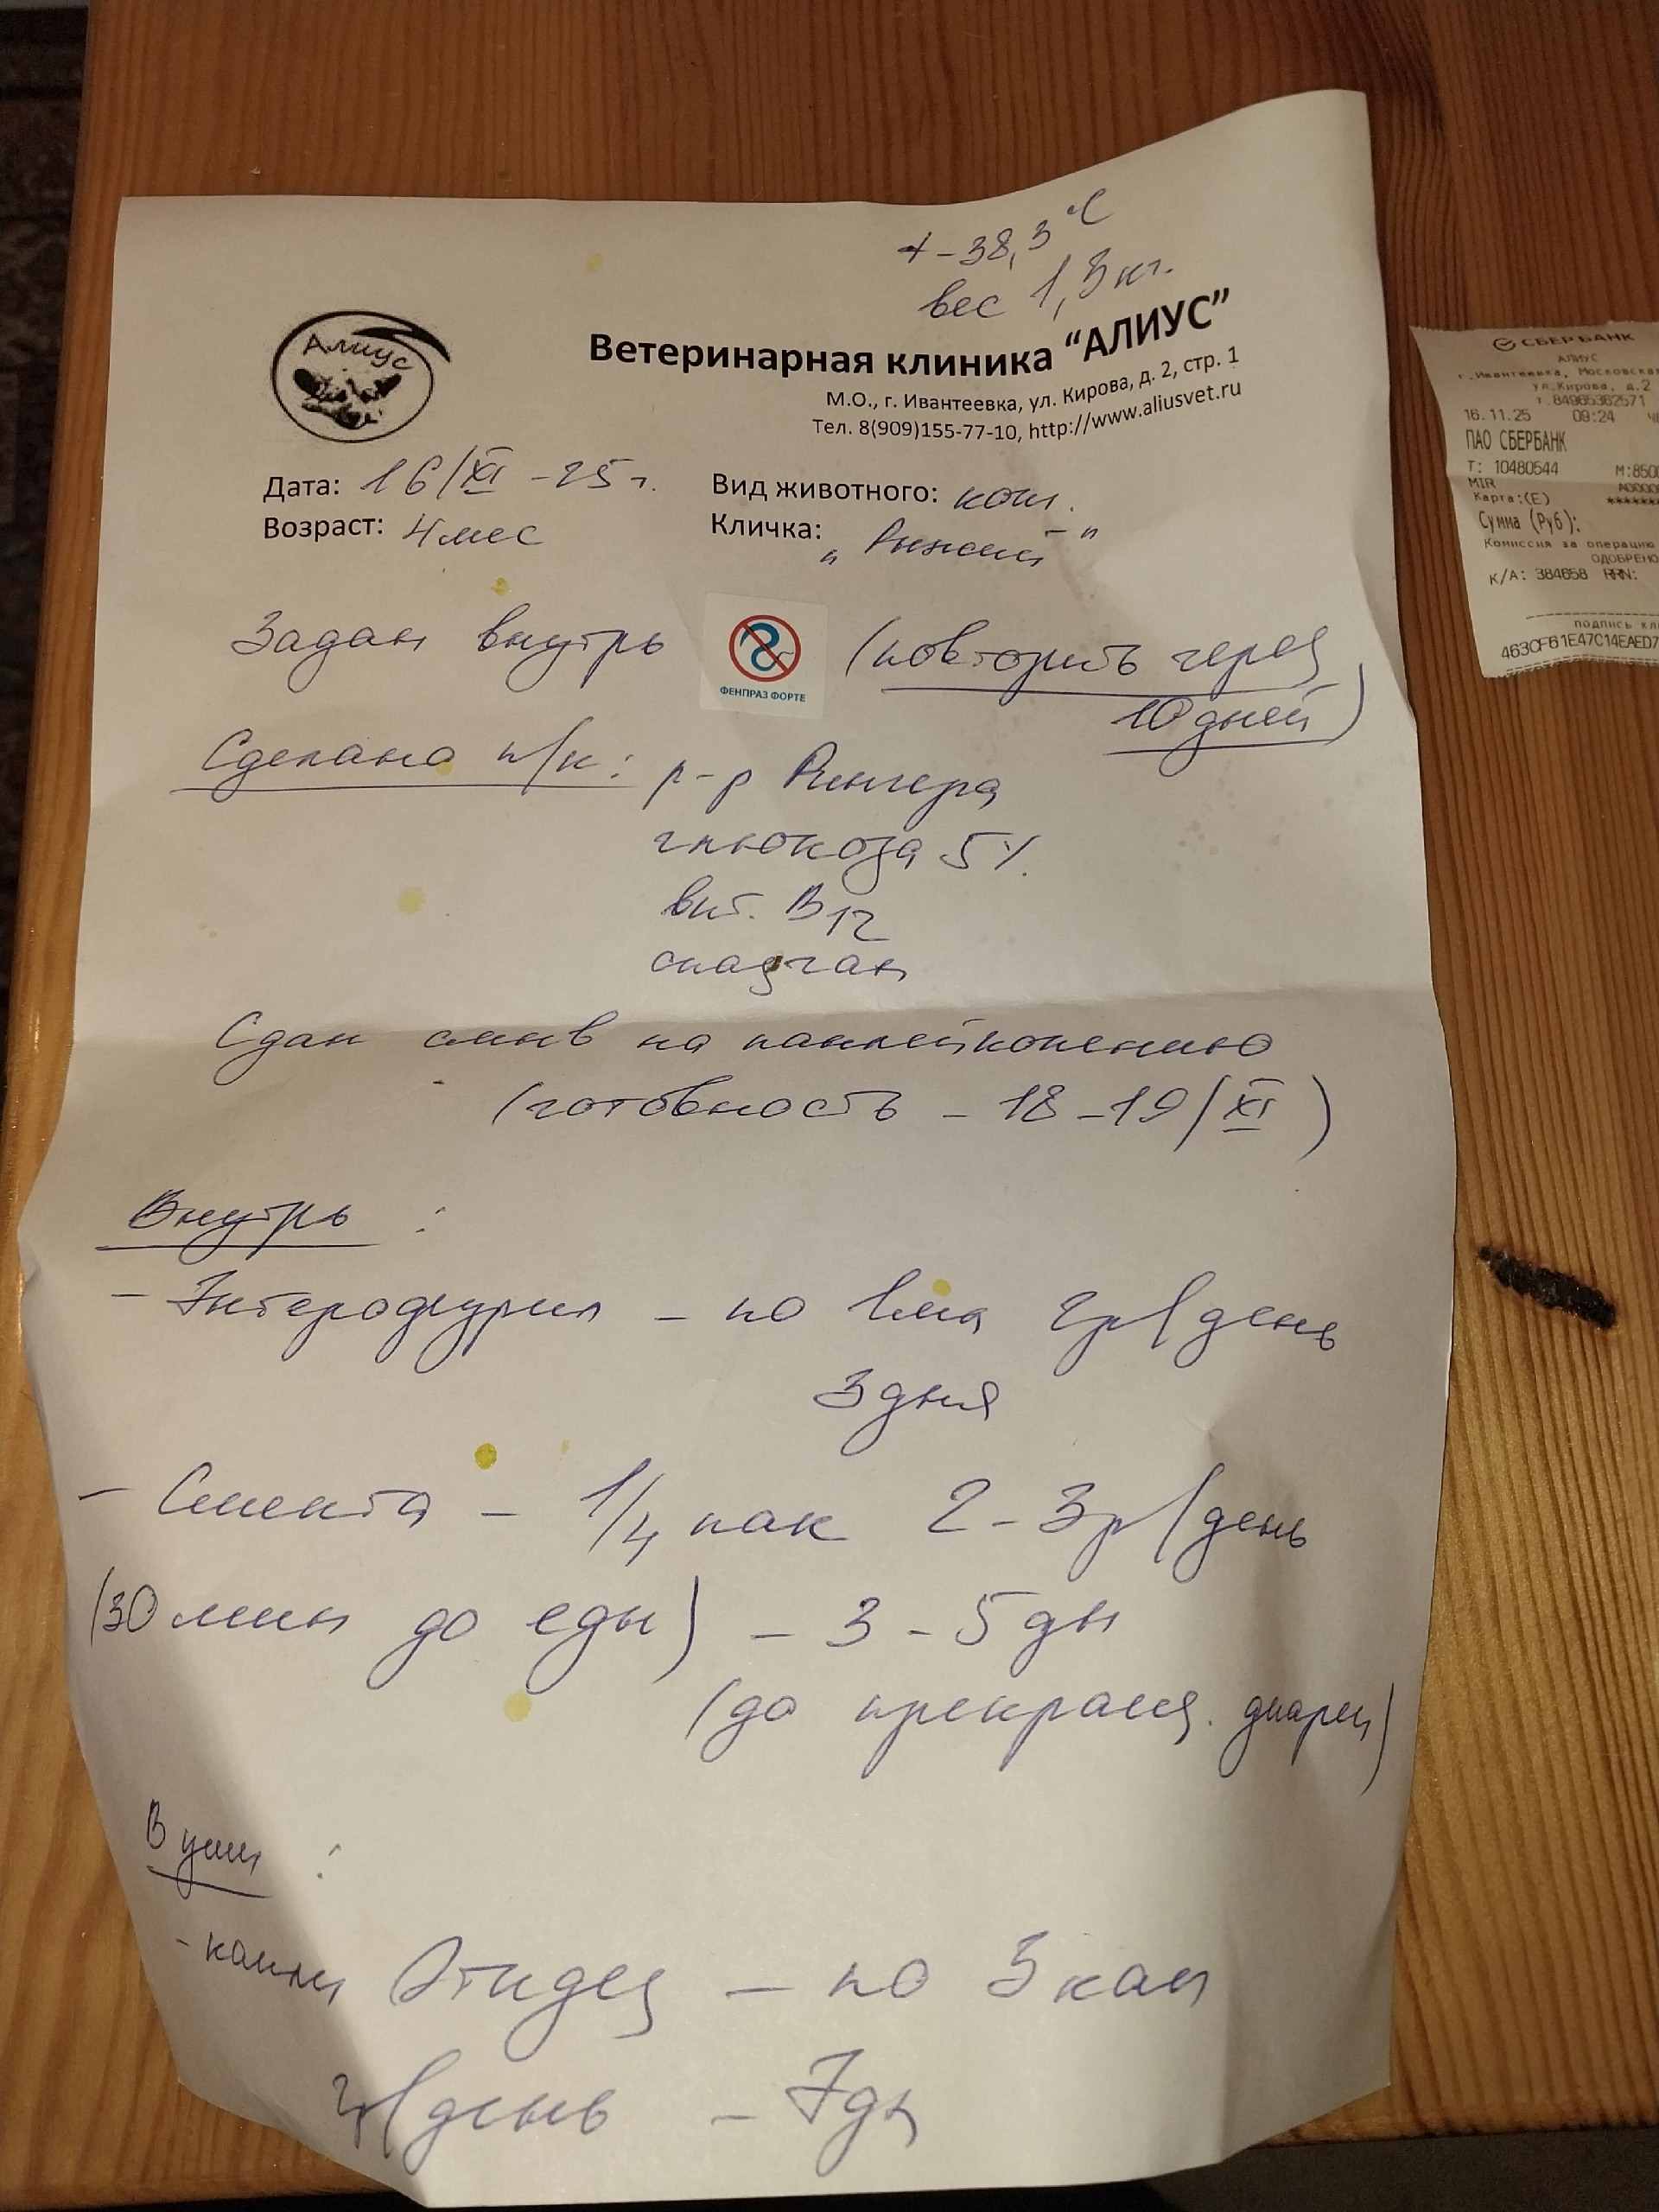 t - 38,3 °C
вес 1,3 кг.
Алиус
Ветеринарная клиника “АЛИУС”
М.О., г. Ивантеевка, ул. Кирова, д. 2, стр. 1
Тел. 8(909)155-77-10, http://www.aliusvet.ru
Дата: 16/XI -25 г.
Вид животного: кош.
Возраст: 4 мес
Кличка: "Рыжий"
Задан внутрь
ФЕНПРАЗ ФОРТЕ
(повторить через
10 дней)
Сделано п/к: р-р Рингера
глюкоза 5%
вит. B12
спазган
Сдан смыв на панлейкопению
(готовность - 18-19/XI)
Внутрь:
- Энтерофурил - по 1 мл 2р/день
3 дня
- Смекта - 1/4 пак 2-3р/день
(30 мин до еды) - 3-5 дн
(до прекращ. диареи)
В уши:
- капли Отидез - по 3 кап
2р/день - 7дн
СБЕРБАНК
АЛИУС
г.Ивантеевка, Московска
ул.Кирова, д.2
т.84965362571
16.11.25 09:24
ПАО СБЕРБАНК
Т: 10480544 М:850
MIR
Карта:(E) *******
Сумма (Руб):
Комиссия за операцию
ОДОБРЕНО
К/А: 384658 RRN:
подпись кл
463CF61E47C14EAED7